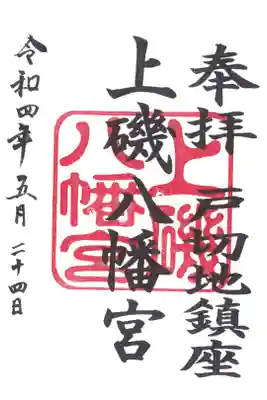 奉拝 戸切地鎮座
上磯八幡宮
上磯八幡宮
令和四年五月二十四日